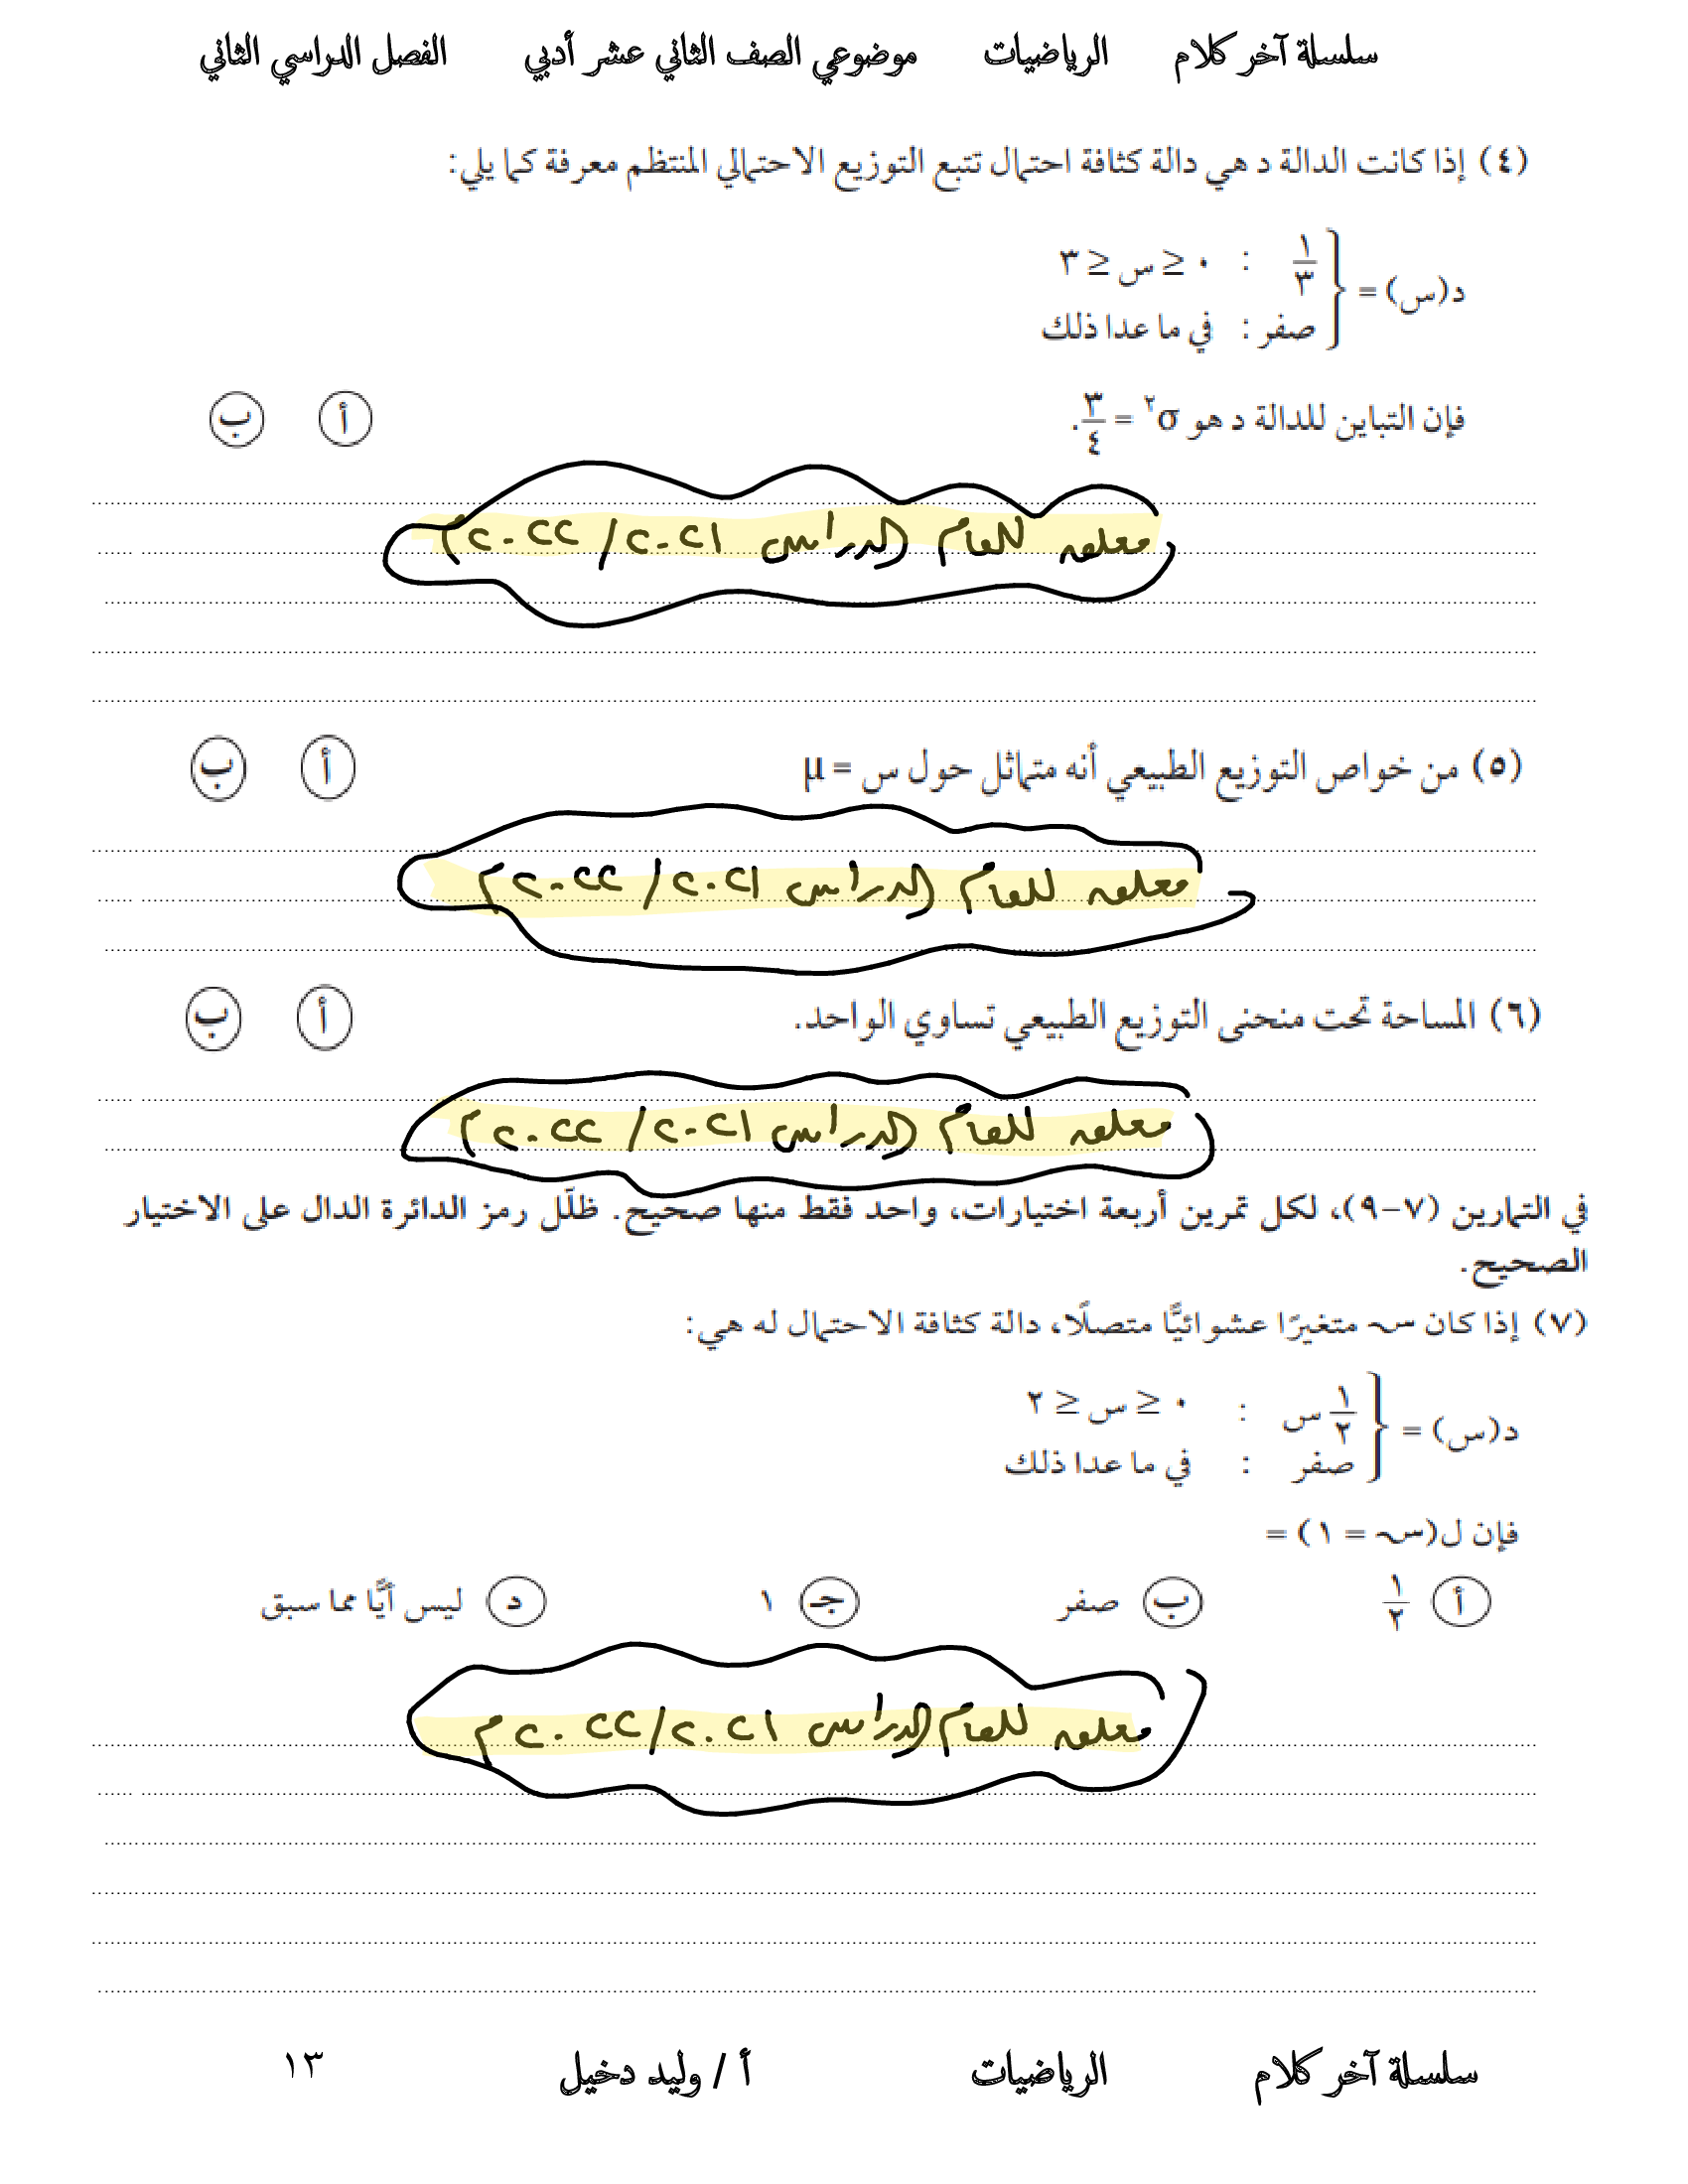 سلسلة آخر كلام الرياضيات موضوعي الصف الثاني عشر أدبي الفصل الدراسي الثاني
(٤) إذا كانت الدالة د هي دالة كثافة احتمال تتبع التوزيع الاحتمالي المنتظم معرفة كما يلي:
د(س) = { ١/٣ : ٠ ≤ س ≤ ٣
صفر : في ما عدا ذلك
فإن التباين للدالة د هو σ² = ٣/٤. أ ب
معلقه للعام الدراسي ٢٠٢١/٢٠٢٢م
(٥) من خواص التوزيع الطبيعي أنه متماثل حول س = μ أ ب
معلقه للعام الدراسي ٢٠٢١/٢٠٢٢م
(٦) المساحة تحت منحنى التوزيع الطبيعي تساوي الواحد. أ ب
معلقه للعام الدراسي ٢٠٢١/٢٠٢٢م
في التمارين (٧-٩)، لكل تمرين أربعة اختيارات، واحد فقط منها صحيح. ظلّل رمز الدائرة الدال على الاختيار
الصحيح.
(٧) إذا كان سـ متغيرًا عشوائيًّا متصلًا، دالة كثافة الاحتمال له هي:
د(س) = { ١/٢ س : ٠ ≤ س ≤ ٢
صفر : في ما عدا ذلك
فإن ل(سـ = ١) =
أ ١/٢ ب صفر جـ ١ د ليس أيًّا مما سبق
معلقه للعام الدراسي ٢٠٢١/٢٠٢٢م
سلسلة آخر كلام الرياضيات أ / وليد دخيل ١٣